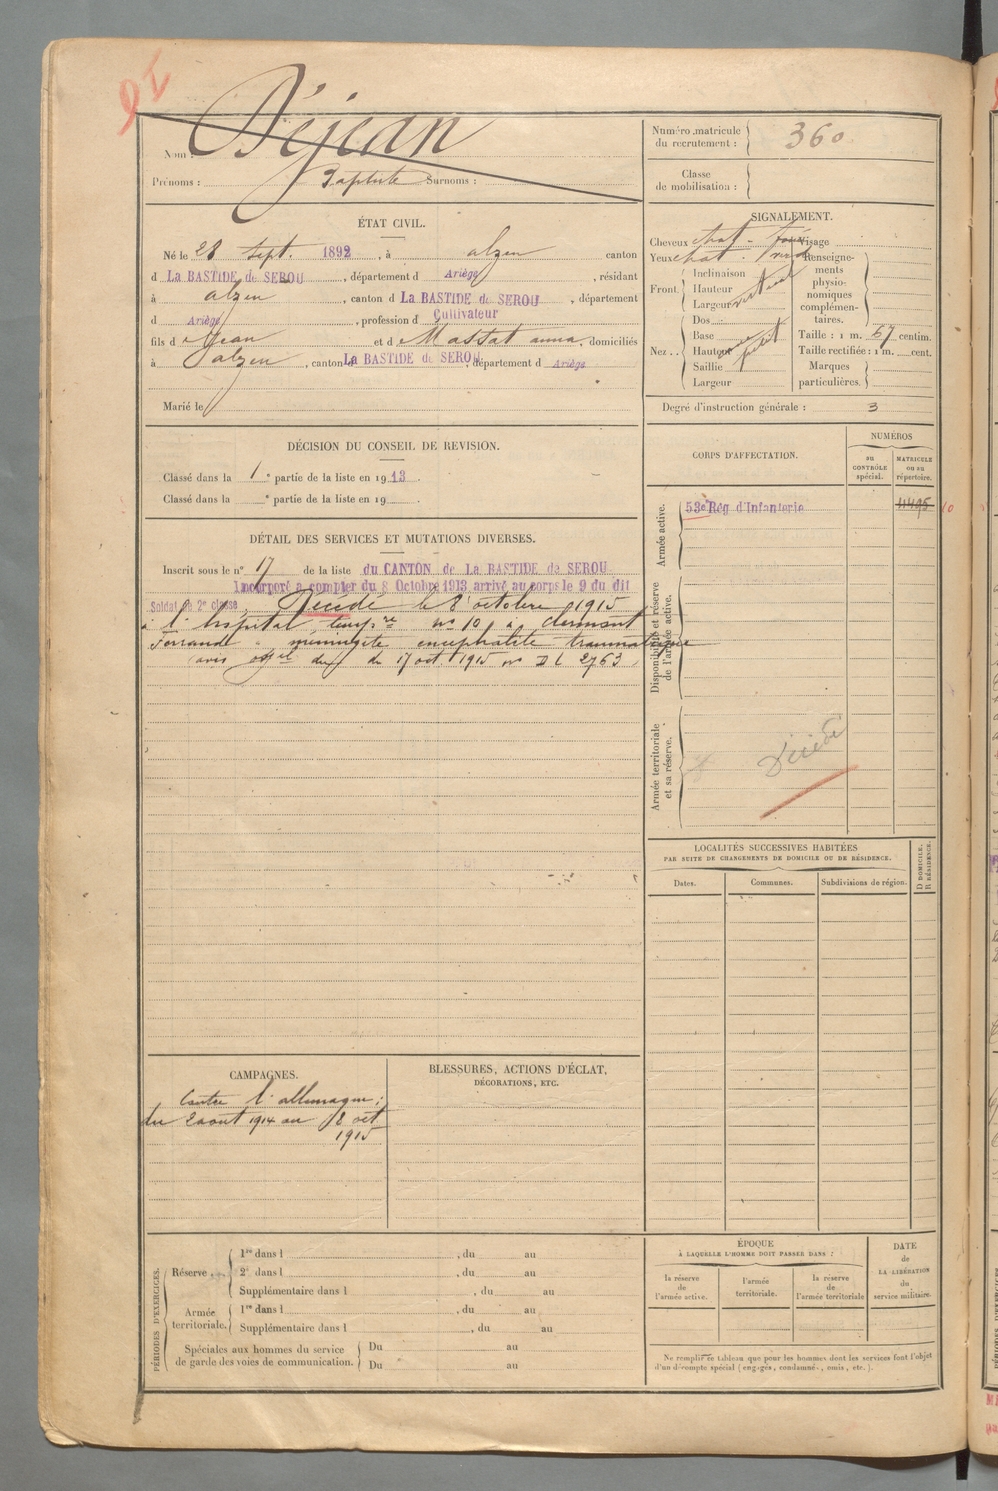 Nom : Déjean
Prénoms : Baptiste Surnoms :
Numéro matricule
du recrutement : 360
Classe
de mobilisation :
ÉTAT CIVIL.
Né le 28 Sept. 1892, à alzen canton
d La BASTIDE de SEROU, département d Ariège, résidant
à alzen, canton d La BASTIDE de SEROU, département
d Ariège, profession d Cultivateur
fils d Jean et d Massat anna, domiciliés
à alzen, canton La BASTIDE de SEROU, département d Ariège
Marié le
SIGNALEMENT.
Cheveux chat - Visage
Yeux chat. Renseigne-
ments
physio-
nomiques
complémen-
taires.
Front
Inclinaison vertical
Hauteur
Largeur
Nez
Dos
Base
Hauteur petit
Saillie
Largeur
Taille : 1 m. 67 centim.
Taille rectifiée : 1 m. cent.
Marques
particulières.
Degré d'instruction générale : 3
DÉCISION DU CONSEIL DE REVISION.
Classé dans la 1e partie de la liste en 1913
Classé dans la e partie de la liste en 19
CORPS D'AFFECTATION.
NUMÉROS
au
CONTRÔLE
spécial.
MATRICULE
ou au
répertoire.
Armée active.
53e Rég d'Infanterie
Disponibilité et réserve
de l'armée active.
Armée territoriale
et sa réserve.
Décédé
DÉTAIL DES SERVICES ET MUTATIONS DIVERSES.
Inscrit sous le n° 17 de la liste du CANTON de La BASTIDE de SEROU
Incorporé à compter du 8 Octobre 1913 arrivé au corps le 9 du dit
Soldat de 2e classe, Décédé le 8 octobre 1915
à l'hospital tempre no 10 à clermont
Ferrand méningite encephalite traumatique
avis offel du 17 oct 1915 no D L 2763
LOCALITÉS SUCCESSIVES HABITÉES
PAR SUITE DE CHANGEMENTS DE DOMICILE OU DE RÉSIDENCE.
D DOMICILE.
R RÉSIDENCE.
Dates.
Communes.
Subdivisions de région.
CAMPAGNES.
Contre l'allemagne;
du 2 aout 1914 au 8 oct
1915
BLESSURES, ACTIONS D'ÉCLAT,
DÉCORATIONS, ETC.
PÉRIODES D'EXERCICES.
Réserve
1re dans l , du au
2e dans l , du au
Supplémentaire dans l , du au
Armée
territoriale.
1re dans l , du au
Supplémentaire dans l , du au
Spéciales aux hommes du service
de garde des voies de communication.
Du au
Du au
ÉPOQUE
À LAQUELLE L'HOMME DOIT PASSER DANS :
la réserve
de
l'armée active.
l'armée
territoriale.
la réserve
de
l'armée territoriale
DATE
de
LA LIBÉRATION
du
service militaire.
Ne remplir ce tableau que pour les hommes dont les services font l'objet
d'un décompte spécial (engagés, condamnés, omis, etc.).